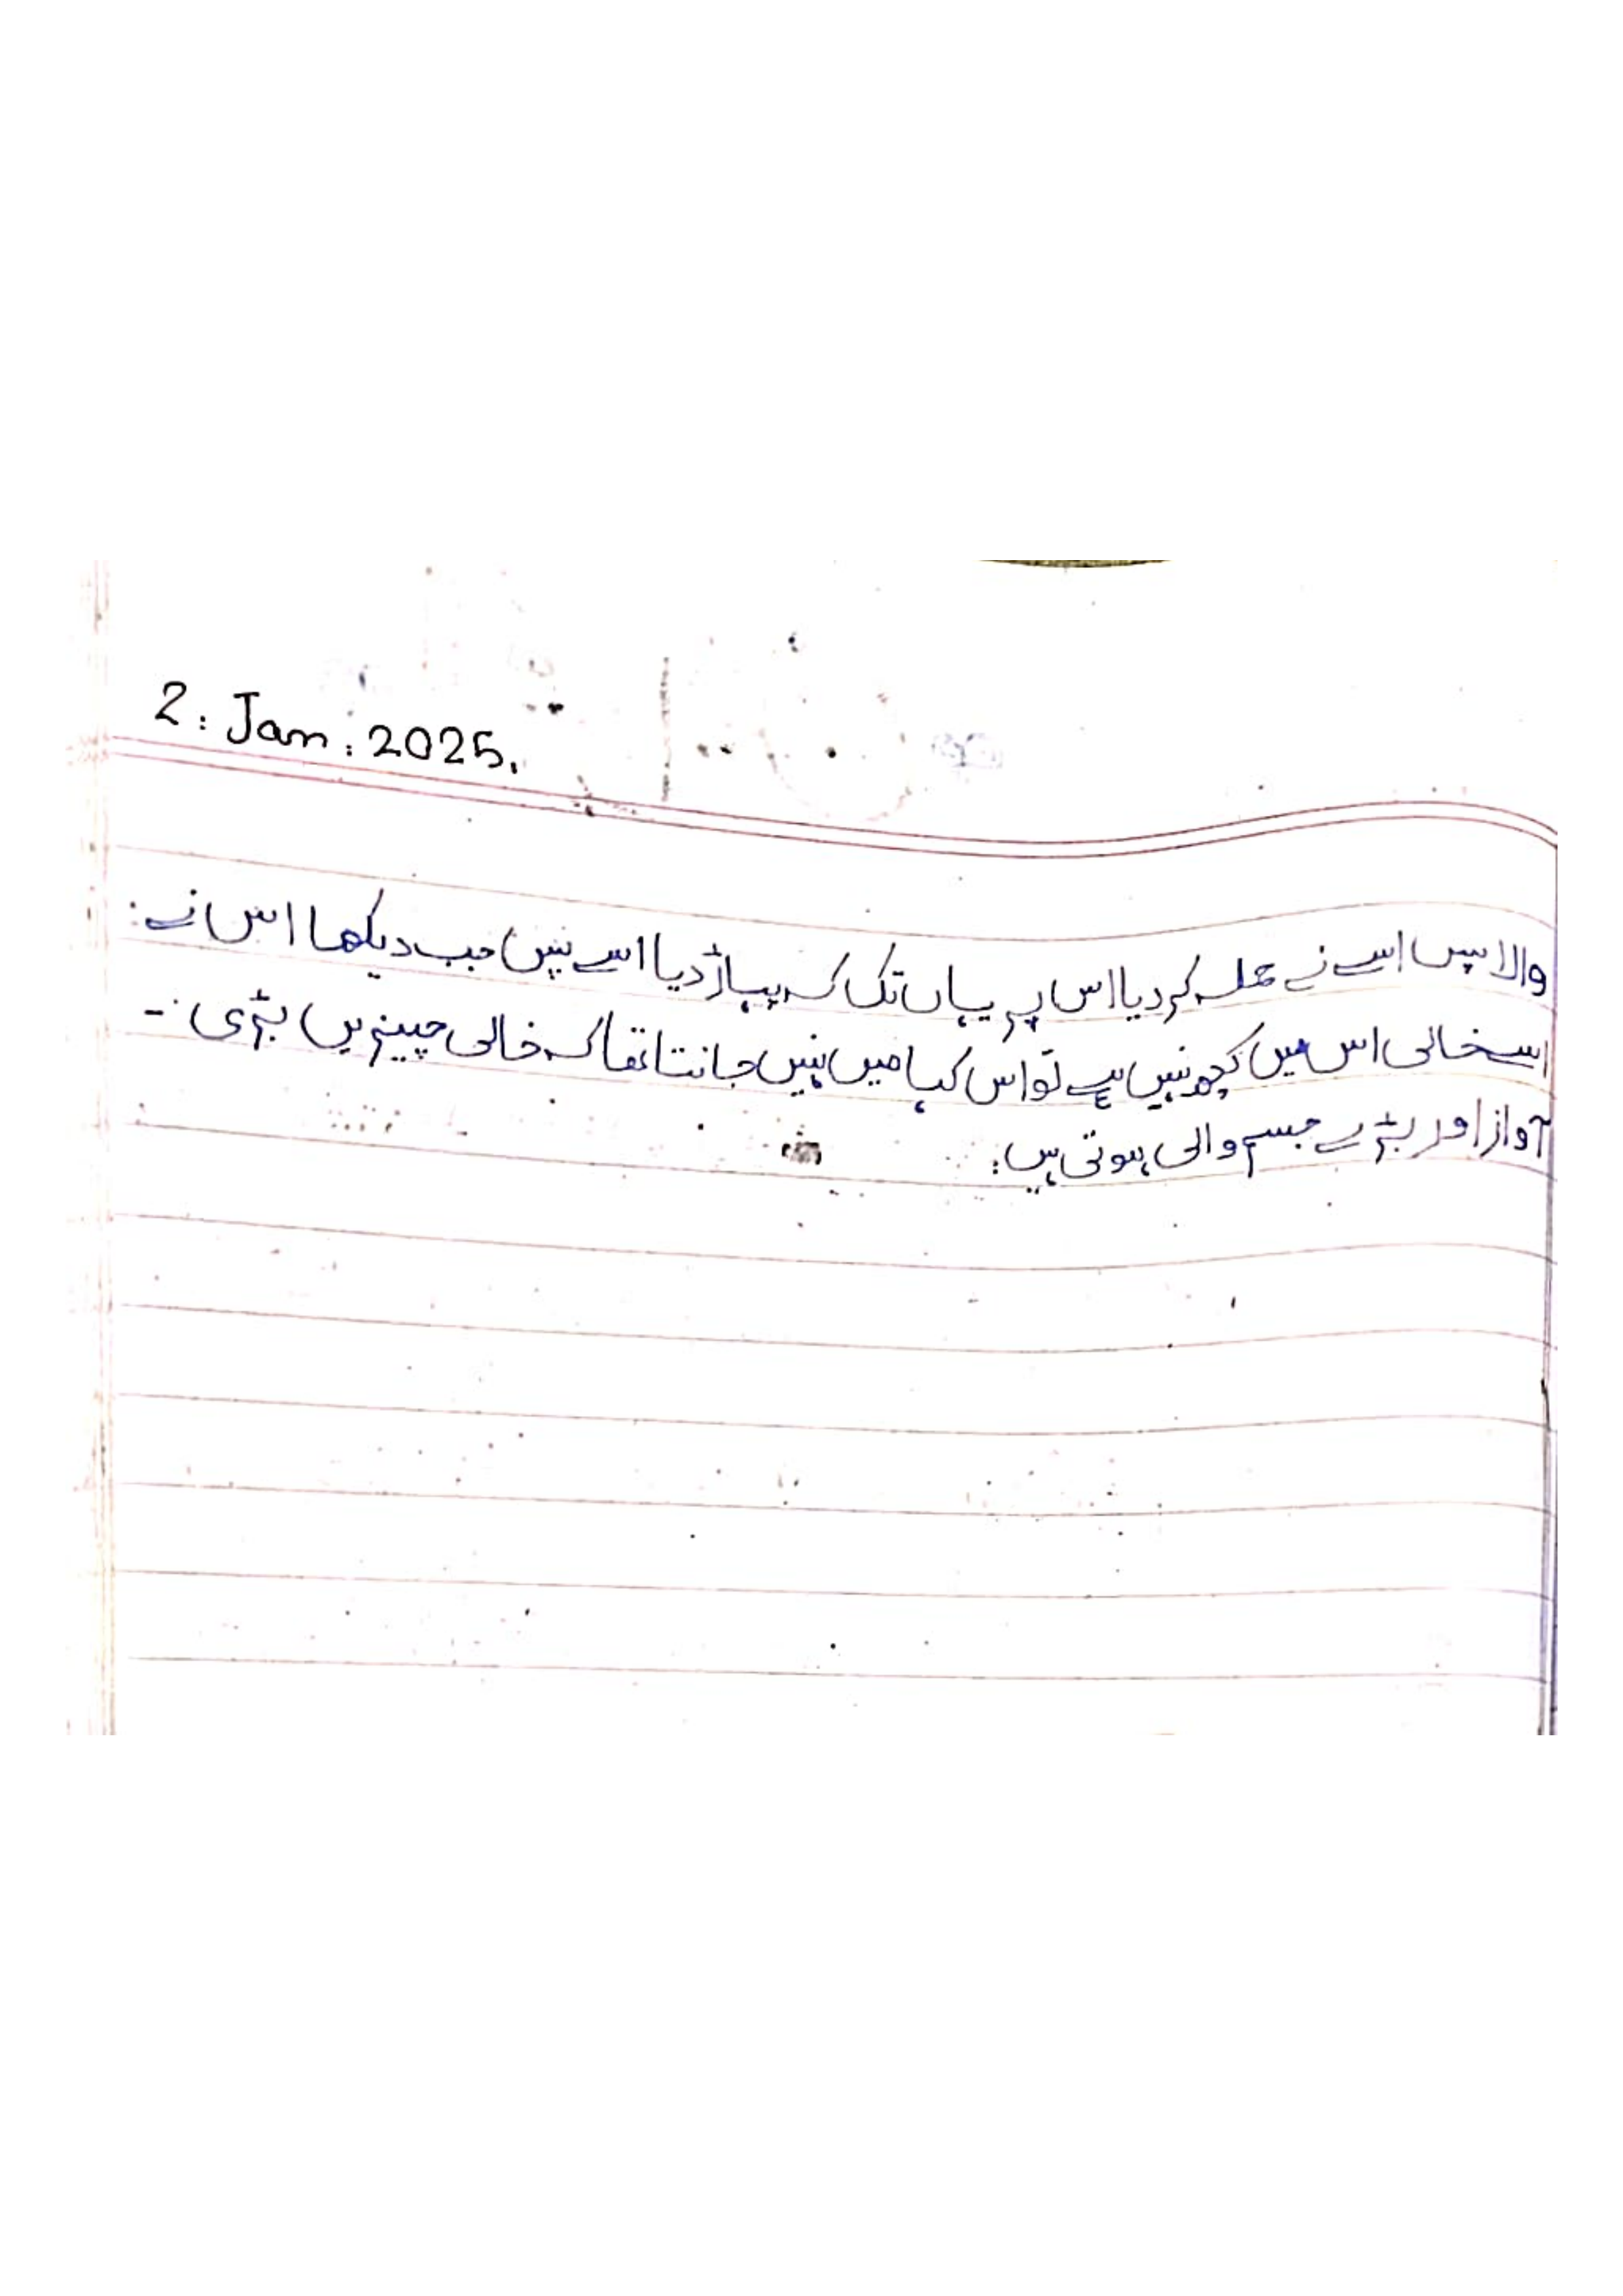 2: Jan: 2025.
والا پس اسے نے حملہ کر دیا اس پر یہاں تک کہ پہاڑ دیا اسے پس جب دیکھا اس نے:
اسے خالی اس میں کچھ نہیں ہے تو اس کہا میں نہیں جانتا تھا کہ خالی چیزیں بڑی :-
آواز اور بڑے جسم والی ہوتی ہیں: